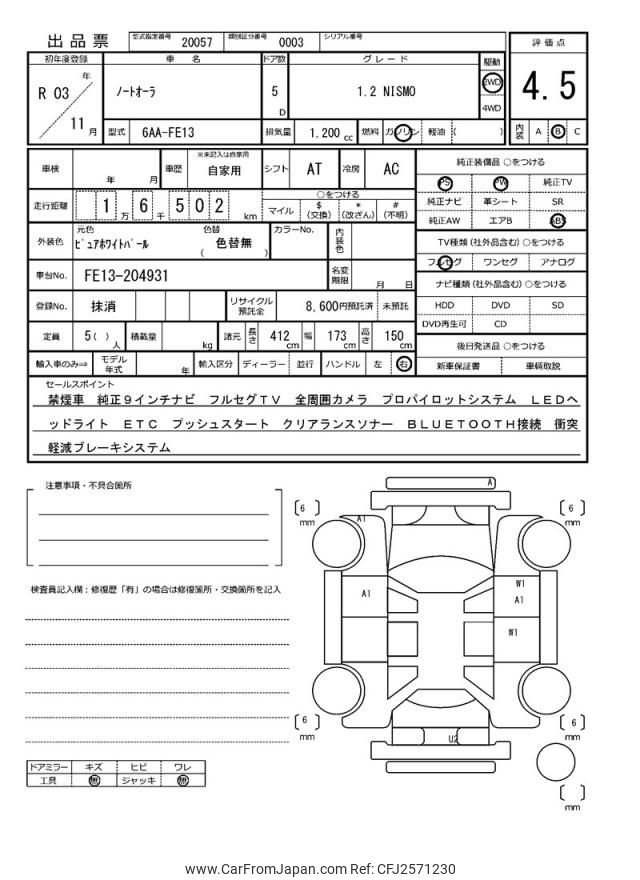 出品票
型式指定番号 20057 類別区分番号 0003 シリアル番号
評価点
4.5
初年度登録 車名 ドア数 グレード 駆動
R 03 年 11 月
ノートオーラ 5 D 1.2 NISMO 2WD 4WD
型式 6AA-FE13 排気量 1.200 cc 燃料 ガソリン 軽油 ( )
内装 A B C
車検 年 月 車歴 ※未記入は自家用 自家用 シフト AT 冷房 AC
純正装備品 ○をつける
PS PW 純正TV
純正ナビ 革シート SR
純正AW エアB ABS
走行距離 1 万 6 千 5 0 2 km
○をつける
マイル $ (交換) * (改ざん) # (不明)
外装色 元色 ピュアホワイトパール 色替 ( 色替無 ) カラーNo. 内装色
TV種類 (社外品含む) ○をつける
フルセグ ワンセグ アナログ
車台No. FE13-204931 名変期限 月 日
ナビ種類 (社外品含む) ○をつける
HDD DVD SD
DVD再生可 CD
登録No. 抹消 リサイクル預託金 8,600円預託済 未預託
定員 5 ( ) 人 積載量 kg 諸元 長さ 412 cm 幅 173 cm 高さ 150 cm
後日発送品 ○をつける
新車保証書 車輌取説
輸入車のみ⇒ モデル年式 年 輸入区分 ディーラー 並行 ハンドル 左 右
セールスポイント
禁煙車 純正9インチナビ フルセグTV 全周囲カメラ プロパイロットシステム LEDヘ
ッドライト ETC プッシュスタート クリアランスソナー BLUETOOTH接続 衝突
軽減ブレーキシステム
注意事項・不具合箇所
検査員記入欄：修復歴「有」の場合は修復箇所・交換箇所を記入
A
6 mm
6 mm
A1
A1
W1
A1
W1
6 mm
6 mm
U2
mm
ドアミラー キズ ヒビ ワレ
工具 無 ジャッキ 無
www.CarFromJapan.com Ref: CFJ2571230